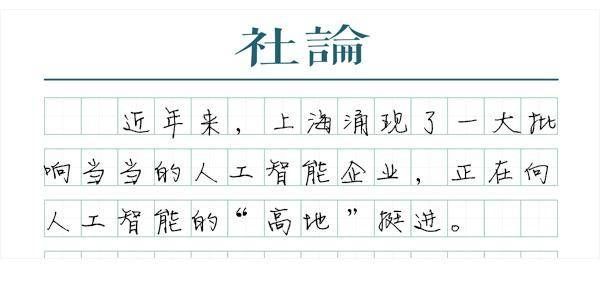 社論
近年来，上海涌现了一大批
响当当的人工智能企业，正在向
人工智能的“高地”挺进。